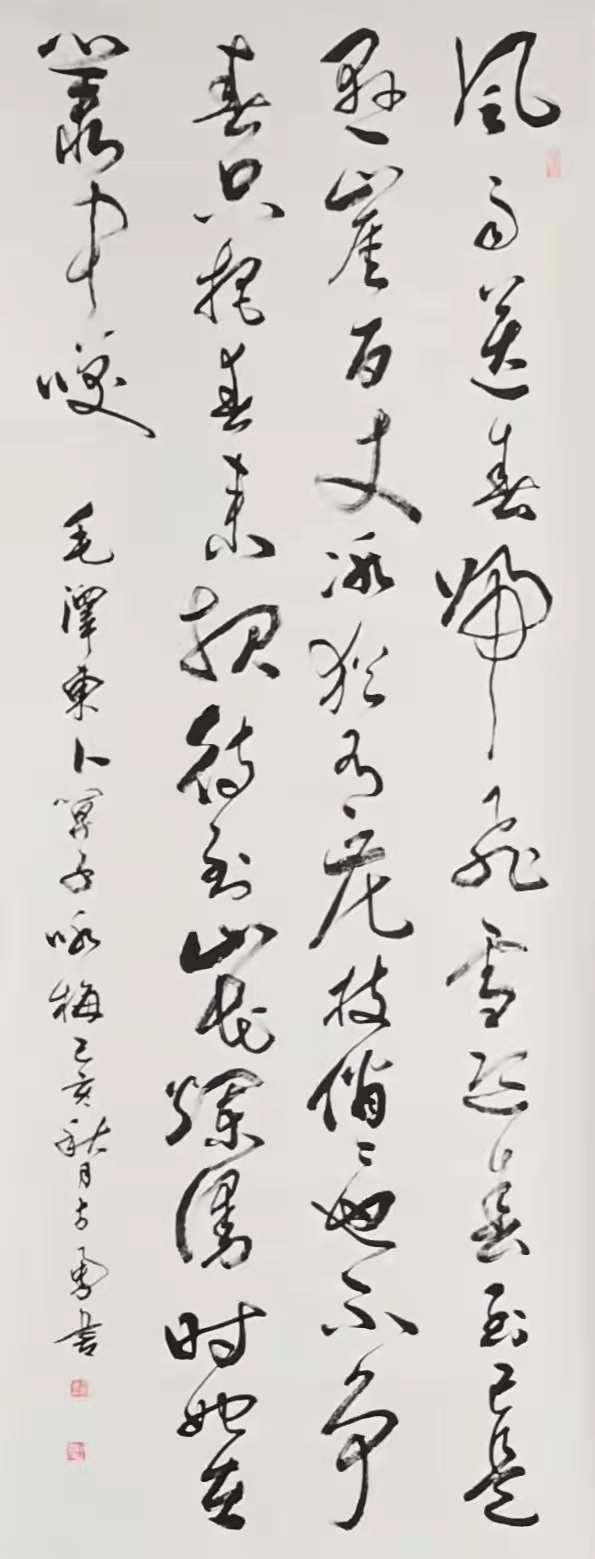 風雨送春歸飛雪迎春到已是
懸崖百丈冰猶有花枝俏〻也不争
春只把春来报待到山花爛漫时她在
叢中咲
毛澤東卜算子咏梅己亥秋月勇書